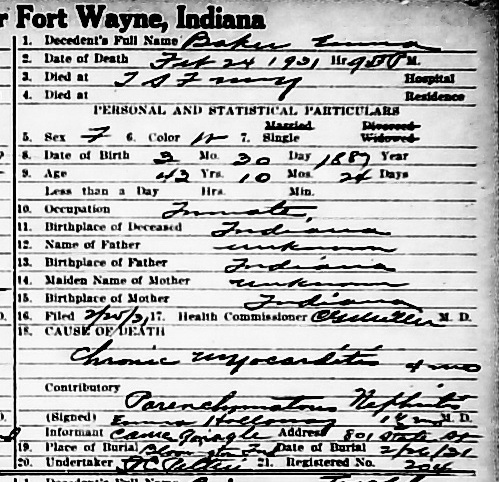 r Fort Wayne, Indiana
1. Decedent's Full Name Baker Emma
2. Date of Death Feb 24 1931 Hr 9 50 P M.
3. Died at I S F M Hospital
4. Died at Residence
PERSONAL AND STATISTICAL PARTICULARS
Married Divorced
5. Sex F 6. Color W 7. Single Widowed
8. Date of Birth 3 Mo. 30 Day 1887 Year
9. Age 43 Yrs. 10 Mos. 24 Days
Less than a Day Hrs. Min.
10. Occupation Inmate
11. Birthplace of Deceased Indiana
12. Name of Father unknown
13. Birthplace of Father Indiana
14. Maiden Name of Mother unknown
15. Birthplace of Mother Indiana
16. Filed 2/25/31 17. Health Commissioner M. D.
18. CAUSE OF DEATH
Chronic Myocarditis 4 mo
Contributory
Parenchymatous Nephritis
(Signed) Emma Holloway M. D.
Informant Address 801 State St
19. Place of Burial Bloomington Ind Date of Burial 2/26/31
20. Undertaker 21. Registered No. 204